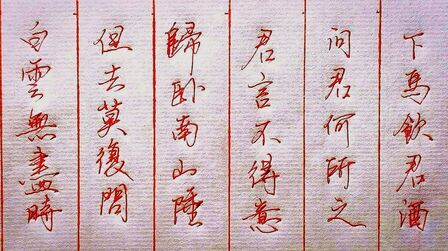 下馬飲君酒
问君何所之
君言不得意
歸卧南山陲
但去莫復問
白雲無盡時